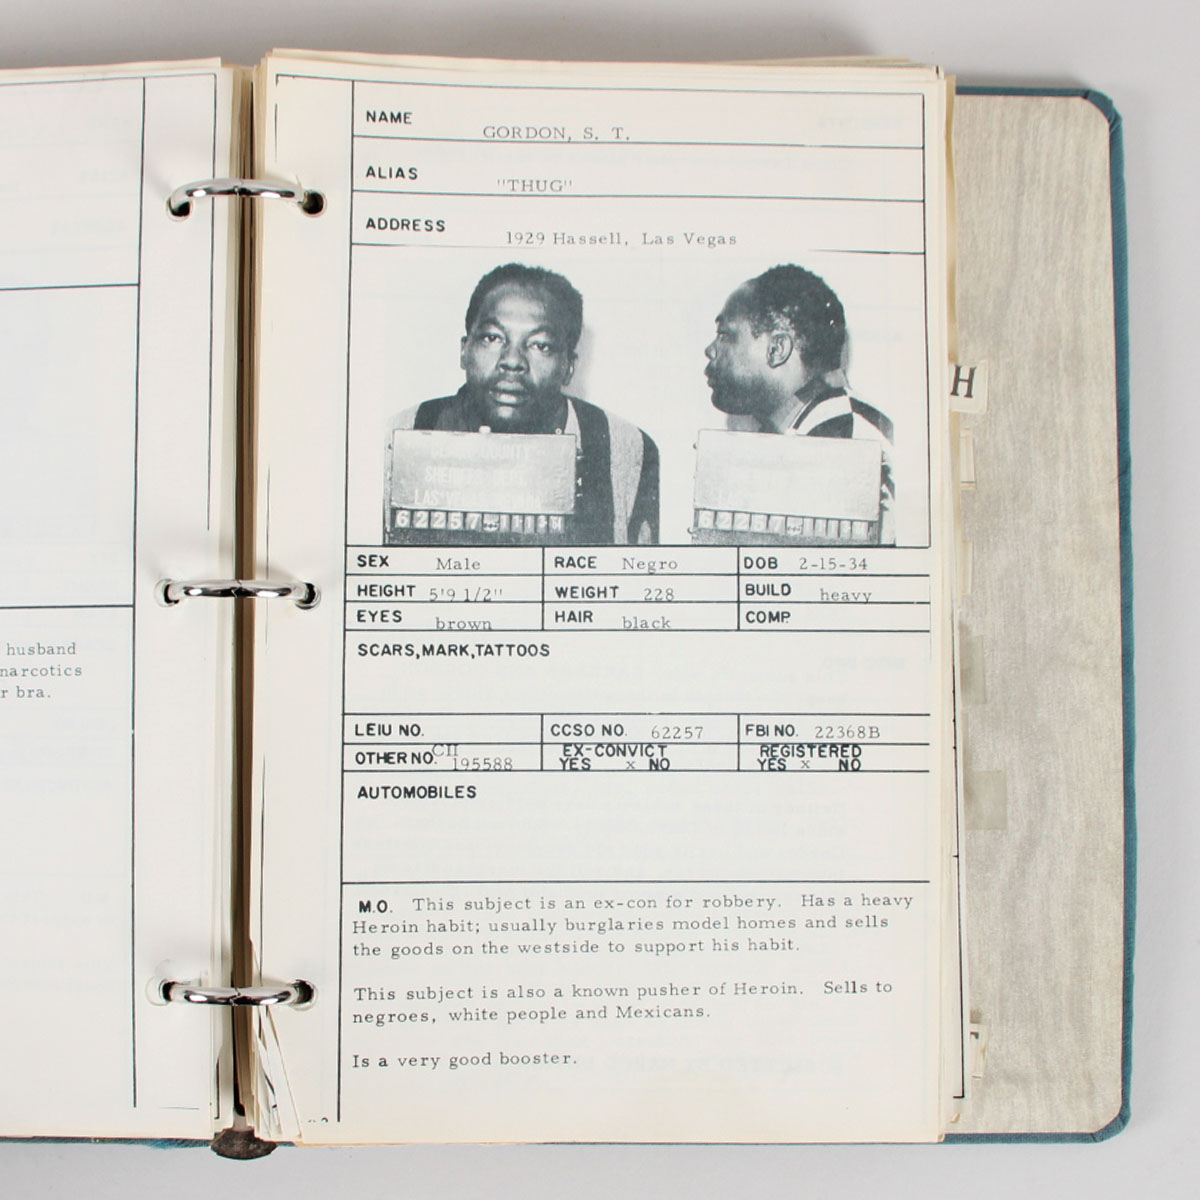 husband
narcotics
r bra.
NAME GORDON, S. T.
ALIAS "THUG"
ADDRESS 1929 Hassell, Las Vegas
SHERIFF'S DEPT.
LAS VEGAS, NEVADA
62257
62257
H
SEX Male RACE Negro DOB 2-15-34
HEIGHT 5'9 1/2" WEIGHT 228 BUILD heavy
EYES brown HAIR black COMP.
SCARS,MARK,TATTOOS
LEIU NO. CCSO NO. 62257 FBI NO. 22368B
OTHER NO. CII 195588 EX-CONVICT YES x NO REGISTERED YES x NO
AUTOMOBILES
M.O. This subject is an ex-con for robbery. Has a heavy
Heroin habit; usually burglaries model homes and sells
the goods on the westside to support his habit.
This subject is also a known pusher of Heroin. Sells to
negroes, white people and Mexicans.
Is a very good booster.